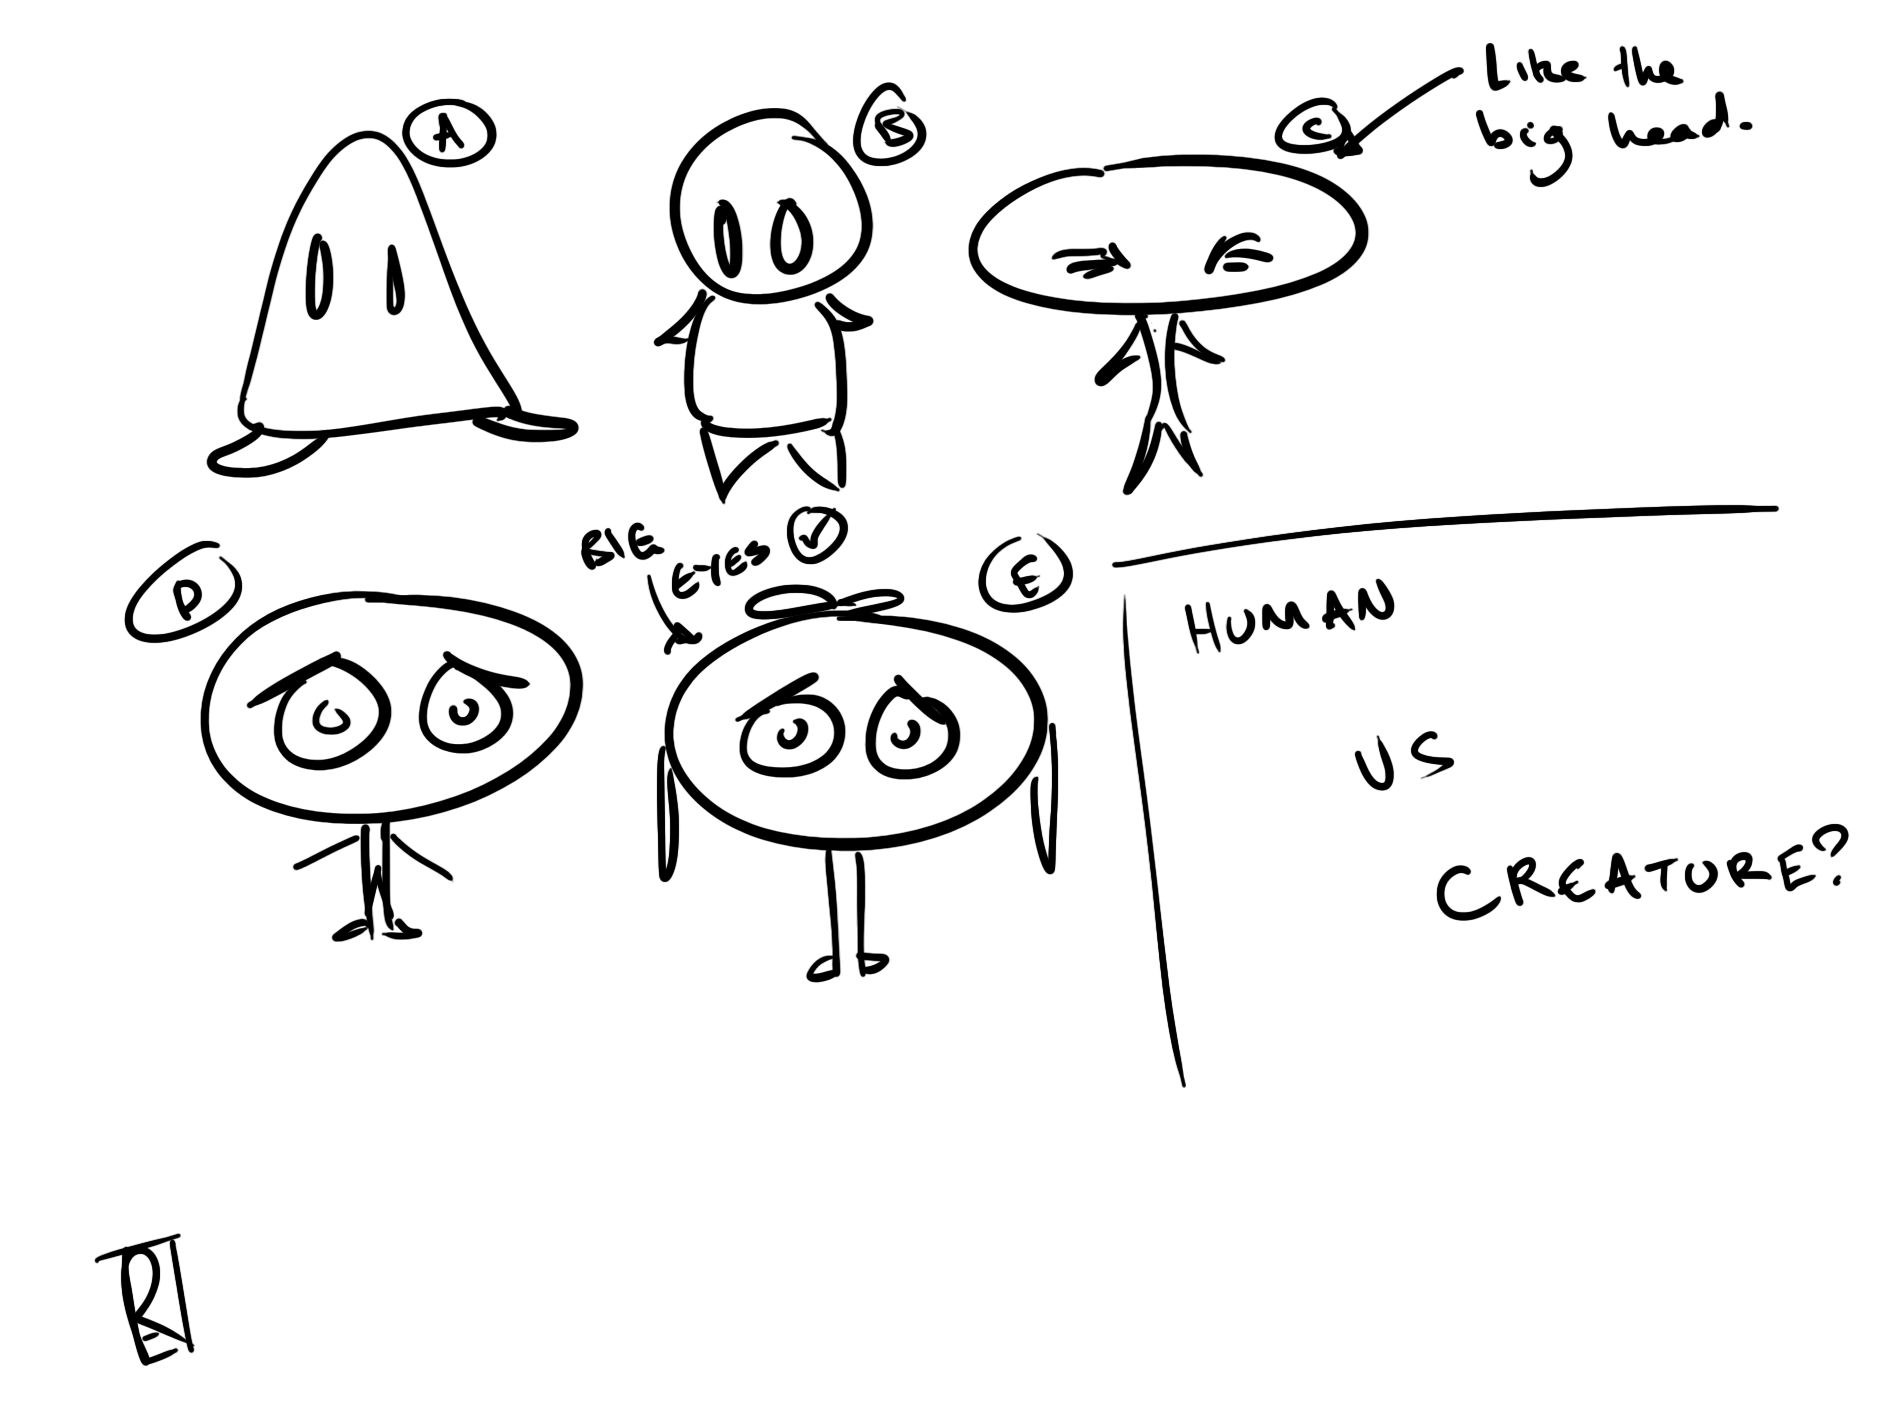 A
B
C
Like the
big head.
D
BIG
EYES
E
HUMAN
VS
CREATURE?